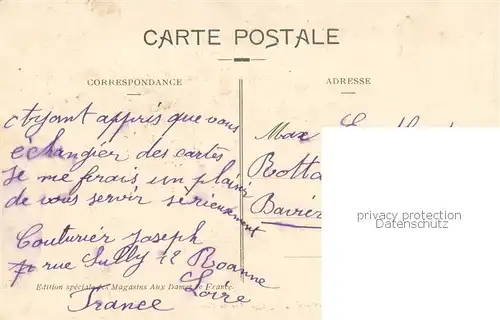 CARTE POSTALE
CORRESPONDANCE
Ayant appris que vous
échangier des cartes
Je me ferais un plaisir
de vous servir serieusement
Couturier Joseph
rue Sully 12 Roanne
Loire
France
Edition spéciale des Magasins Aux Dames de France
ADRESSE
Max
Rotta
Bavièr
privacy protection
Datenschutz